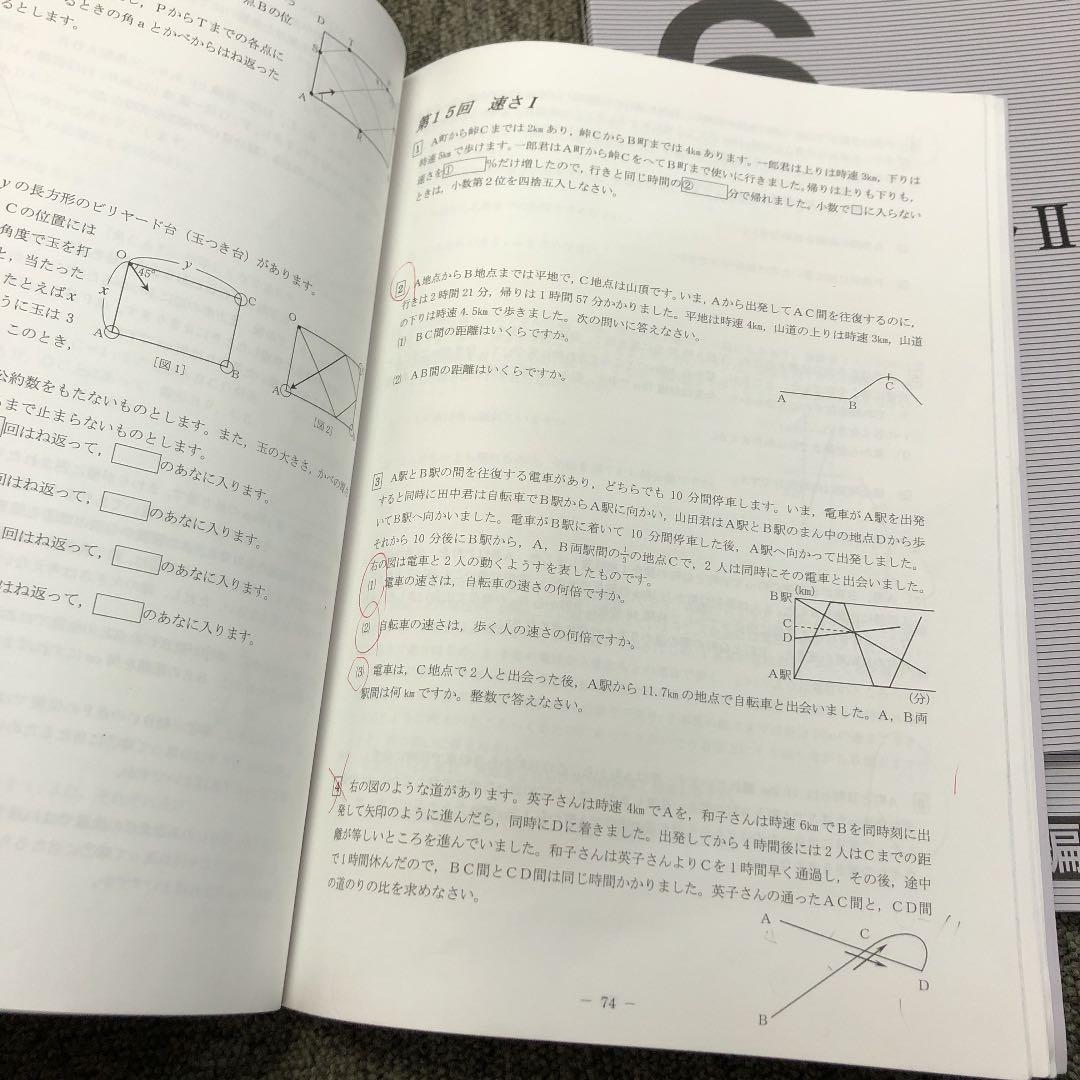 点Bの位
し，PからTまでの各点に
るときの角aとかべからはね返った
るとします。
D
T
A
yの長方形のビリヤード台（玉つき台）があります。
Cの位置には
角度で玉を打
と，当たった
たとえばx
うに玉は3
このとき，
O
y
45°
x
C
A
B
[図1]
O
A
[図2]
公約数をもたないものとします。また，玉の大きさ，かべの
まで止まらないものとします。
回はね返って，□のあなに入ります。
回はね返って，□のあなに入ります。
回はね返って，□のあなに入ります。
はね返って，□のあなに入ります。
第15回 速さⅠ
1 A町から峠Cまでは2kmあり，峠CからB町までは4kmあります。一郎君は上りは時速3km，下りは
時速5kmで歩けます。一郎君はA町から峠CをへてB町まで使いに行きました。帰りは上りも下りも，
速さを①%だけ増したので，行きと同じ時間の②分で帰れました。小数で□に入らない
ときは，小数第2位を四捨五入しなさい。
2 A地点からB地点までは平地で，C地点は山頂です。いま，Aから出発してAC間を往復するのに，
行きは2時間21分，帰りは1時間57分かかりました。平地は時速4km，山道の上りは時速3km，山道
の下りは時速4.5kmで歩きました。次の問いに答えなさい。
(1) BC間の距離はいくらですか。
(2) AB間の距離はいくらですか。
A
B
C
3 A駅とB駅の間を往復する電車があり，どちらでも10分間停車します。いま，電車がA駅を出発
すると同時に田中君は自転車でB駅からA駅に向かい，山田君はA駅とB駅のまん中の地点Dから歩
いてB駅へ向かいました。電車がB駅に着いて10分間停車した後，A駅へ向かって出発しました。
それから10分後にB駅から，A，B両駅間の1/3の地点Cで，2人は同時にその電車と出会いました。
右の図は電車と2人の動くようすを表したものです。
(1) 電車の速さは，自転車の速さの何倍ですか。
(2) 自転車の速さは，歩く人の速さの何倍ですか。
(3) 電車は，C地点で2人と出会った後，A駅から11.7kmの地点で自転車と出会いました。A，B両
駅間は何kmですか。整数で答えなさい。
B駅
(km)
C
D
A駅
(分)
4 右の図のような道があります。英子さんは時速4kmでAを，和子さんは時速6kmでBを同時刻に出
発して矢印のように進んだら，同時にDに着きました。出発してから4時間後には2人はCまでの距
離が等しいところを進んでいました。和子さんは英子さんよりCを1時間早く通過し，その後，途中
で1時間休んだので，BC間とCD間は同じ時間かかりました。英子さんの通ったAC間と，CD間
の道のりの比を求めなさい。
A
C
D
B
－ 74 －
6
Ⅱ
編